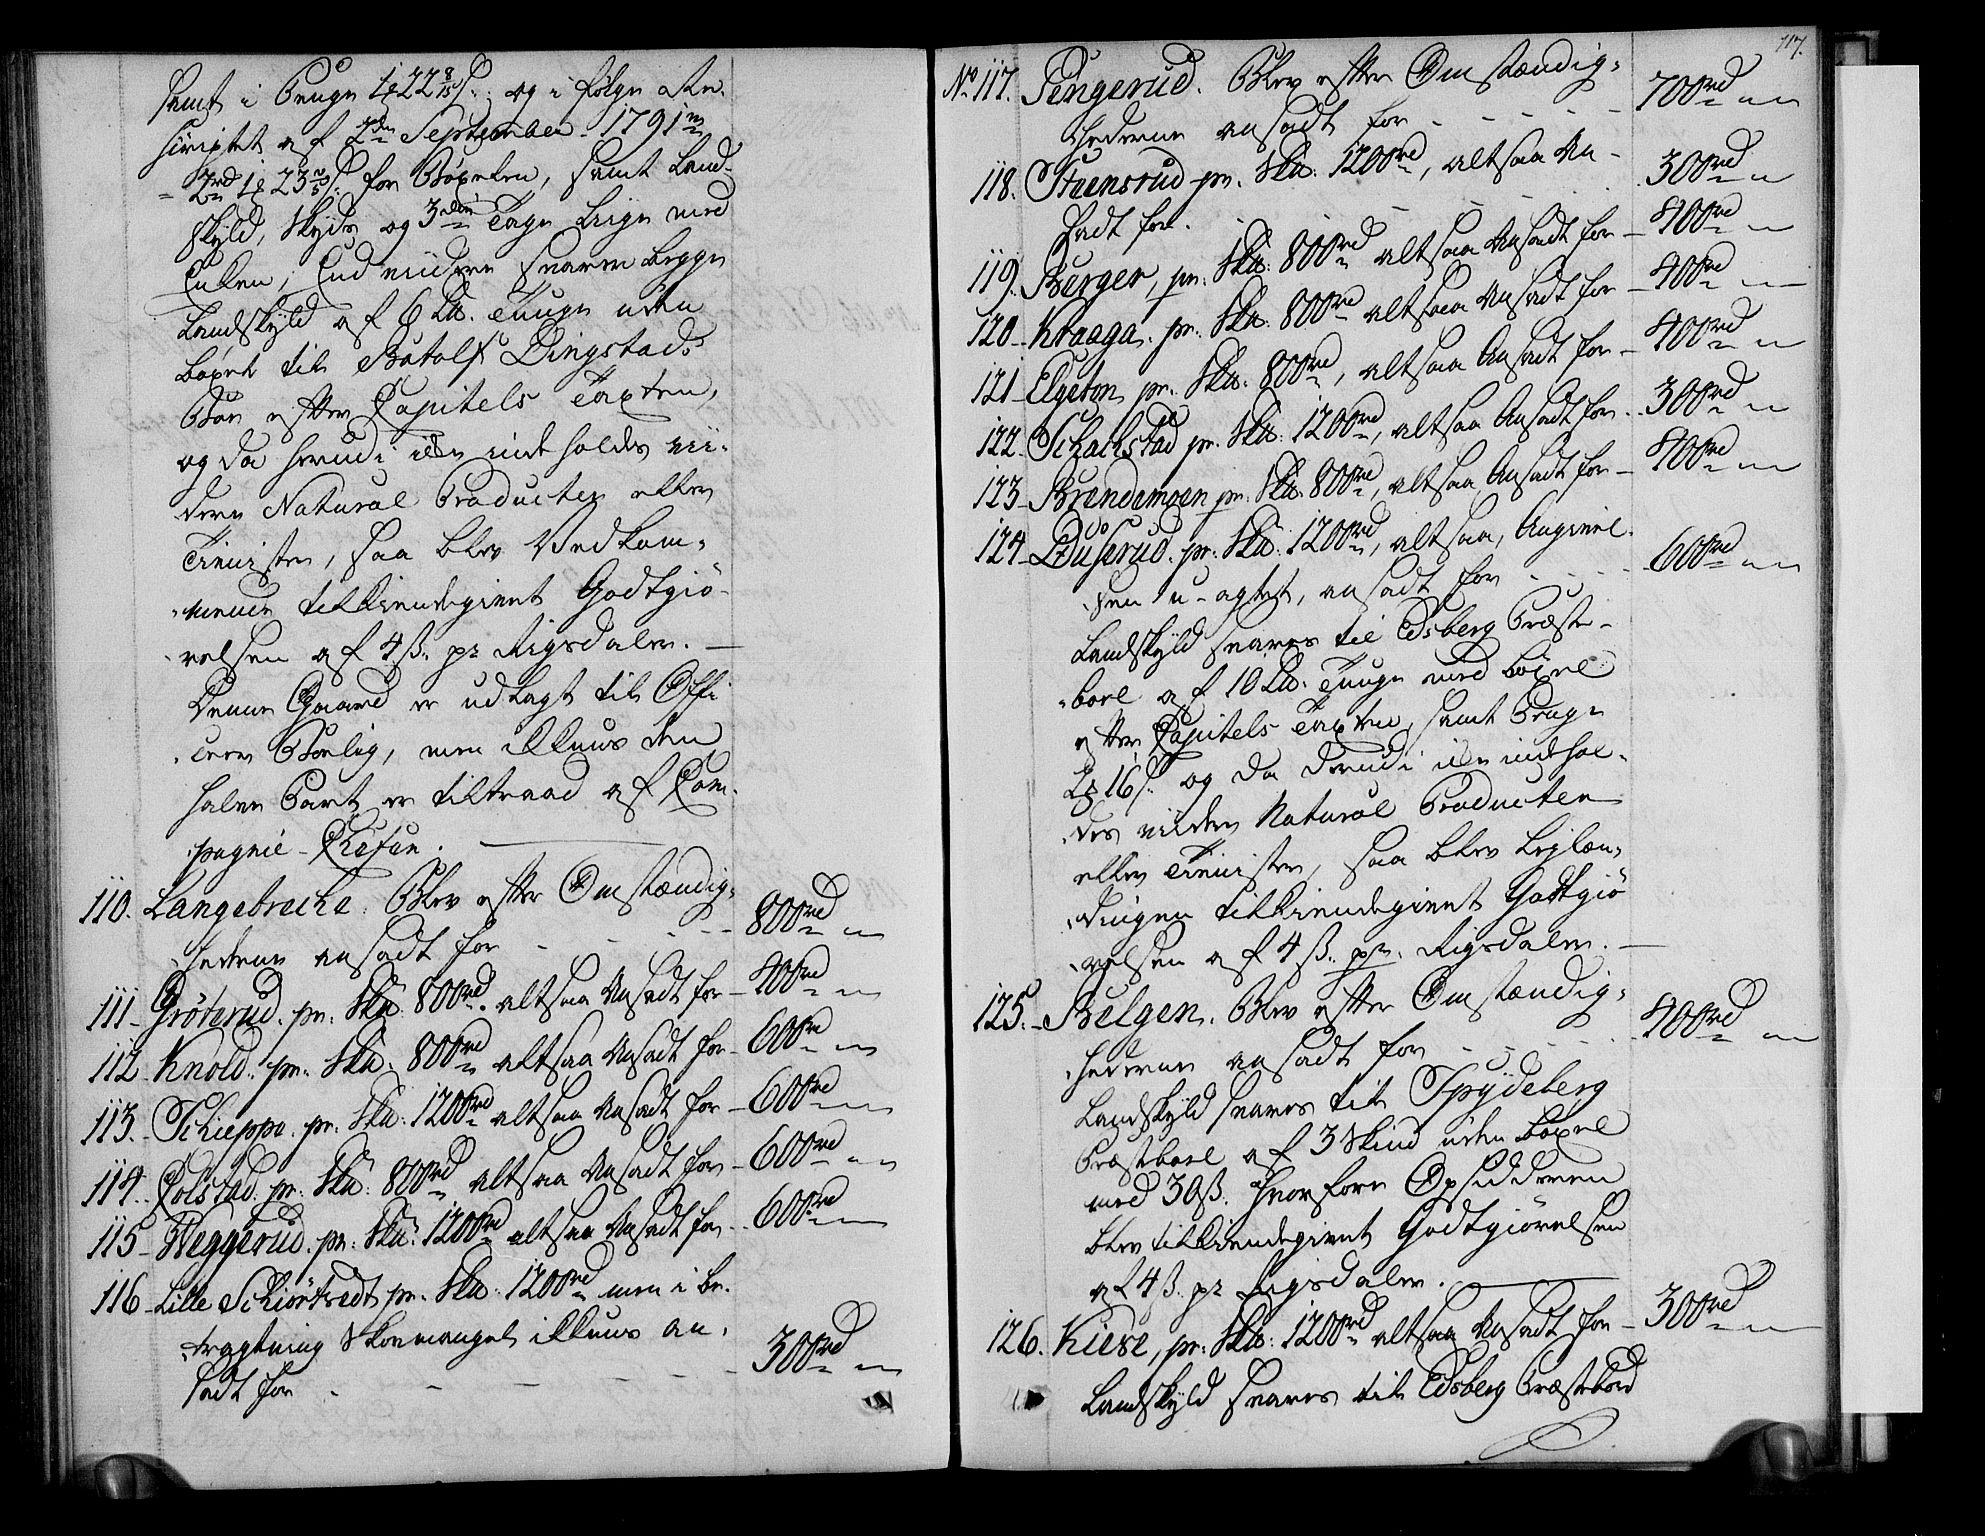 samt i Penge 1 22 8/15 s. og i følge Re-
scriptet af 2den September 1791 m
2rd 1 23 2/5 s. for Bøxelen, samt Land-
skyld, Skyds og 3die Tage Leige med
Enken; End viidere svares begge
Landskyld af 6 Lb. Tunge uden
boxel til Botolf Dingstads
Bøn efter Capitels Taxten,
og da herudi ide indholdes vii-
dere Natural Producter eller
Tienister, saa blev Vedkom-
mende tilkiendegivet Godtgiø-
relsen af 4 ß. pr Rigsdaler.
Denne Gaard er udlagt til Offi
ceer Boelig, men ikkuns den
halve Part er tiltraad af Com-
pagnie-Chefen.
110. Langebreche. Blev efter Omstændig-
hederne ansadt for - - - 800rd
111. Grøterud. pr. Ska. 800rd. altsaa Ansadt for 400rd
112. Knold. pr. Ska. 800rd altsaa Ansadt for 600rd
113. Schieppe. pr. Ska. 1200rd altsaa Ansadt for 600rd
114. Colstad. pr. Ska. 800rd altsaa Ansadt for 600rd
115. Heggerud. pr. Ska. 1200rd altsaa Ansadt for 600rd
116. Lille Schiørtredt pr. Ska. 1200rd men i be-
tragtning Skovmangel ikkuns an-
sadt for - - - 300rd
117.
No 117. Sengerud. Blev efter Omstændig-
hederne ansadt for - - - 700rd
118. Stuensrud pr. Ska. 1200rd, altsaa An-
sadt for - - - 300rd
119. Berger, pr. Ska. 800rd altsaa Ansadt for 400rd
120. Kraaga. pr. Ska. 800rd altsaa Ansadt for 400rd
121. Elgeton pr. Ska. 800rd, altsaa Ansadt for 400rd
122. Schachstad pr. Ska. 1200rd, altsaa Ansadt for 300rd
123. Brendemoen pr. Ska. 800rd, altsaa Ansadt for 400rd
124. Duserud. pr. Ska. 1200rd, altsaa, Angivel-
sen u-agtet, ansadt for - - - 600rd
Landskyld svares til Edsberg Præste-
boel af 10 Lb. Tunge med boxel
efter Capitels Taxten, samt Penge
16 s. og da derudi ide indhol-
des viidere Natural Producter
eller Tienister, saa blev Leylæn-
dingen tilkiendegivet Godtgiø
relsen af 4 ß. pr. Rigsdaler.
125. Belgen. Blev efter Omstændig-
hederne ansadt for - - - 400rd
Landskyld svares til Spydeberg
Præsteboel af 3 Skind uden boxel
med 30 ß. hvorfore Opsidderen
blev tilkiendegivet Godtgiørelsen
af 4 ß. pr Rigsdaler.
126. Kiese, pr. Ska. 1200rd altsaa Ansadt for 300rd
Landskyld svares til Edsberg Præstebord